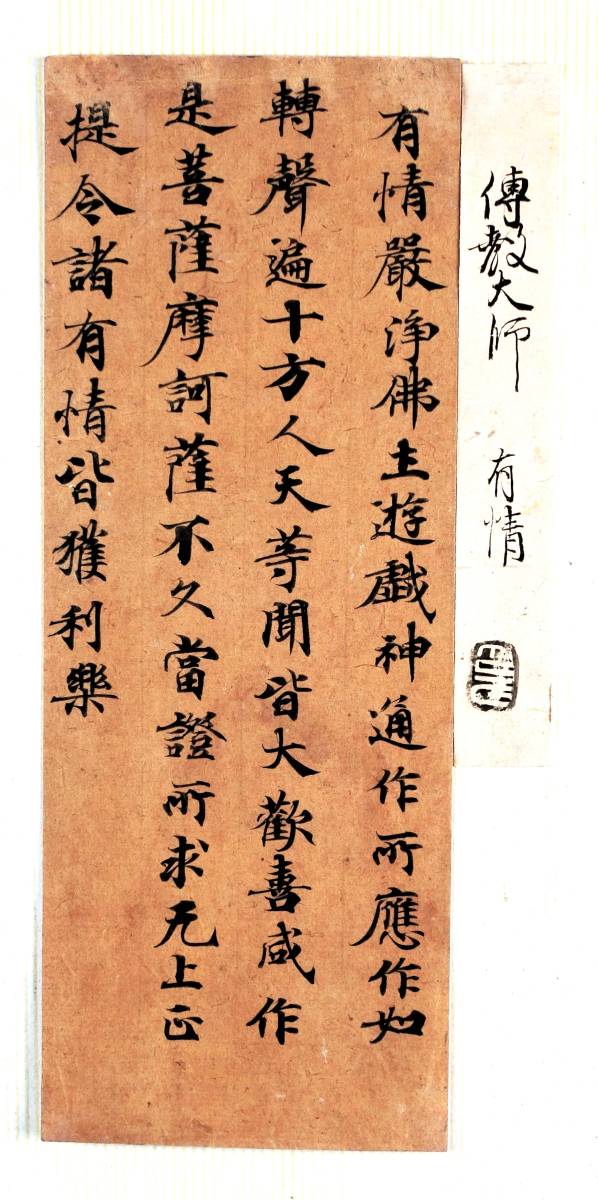 傳教大師 有情
有情嚴淨佛土遊戲神通作所應作如
轉聲遍十方人天等聞皆大歡喜咸作
是菩薩摩訶薩不久當證所求无上正
提令諸有情皆獲利樂